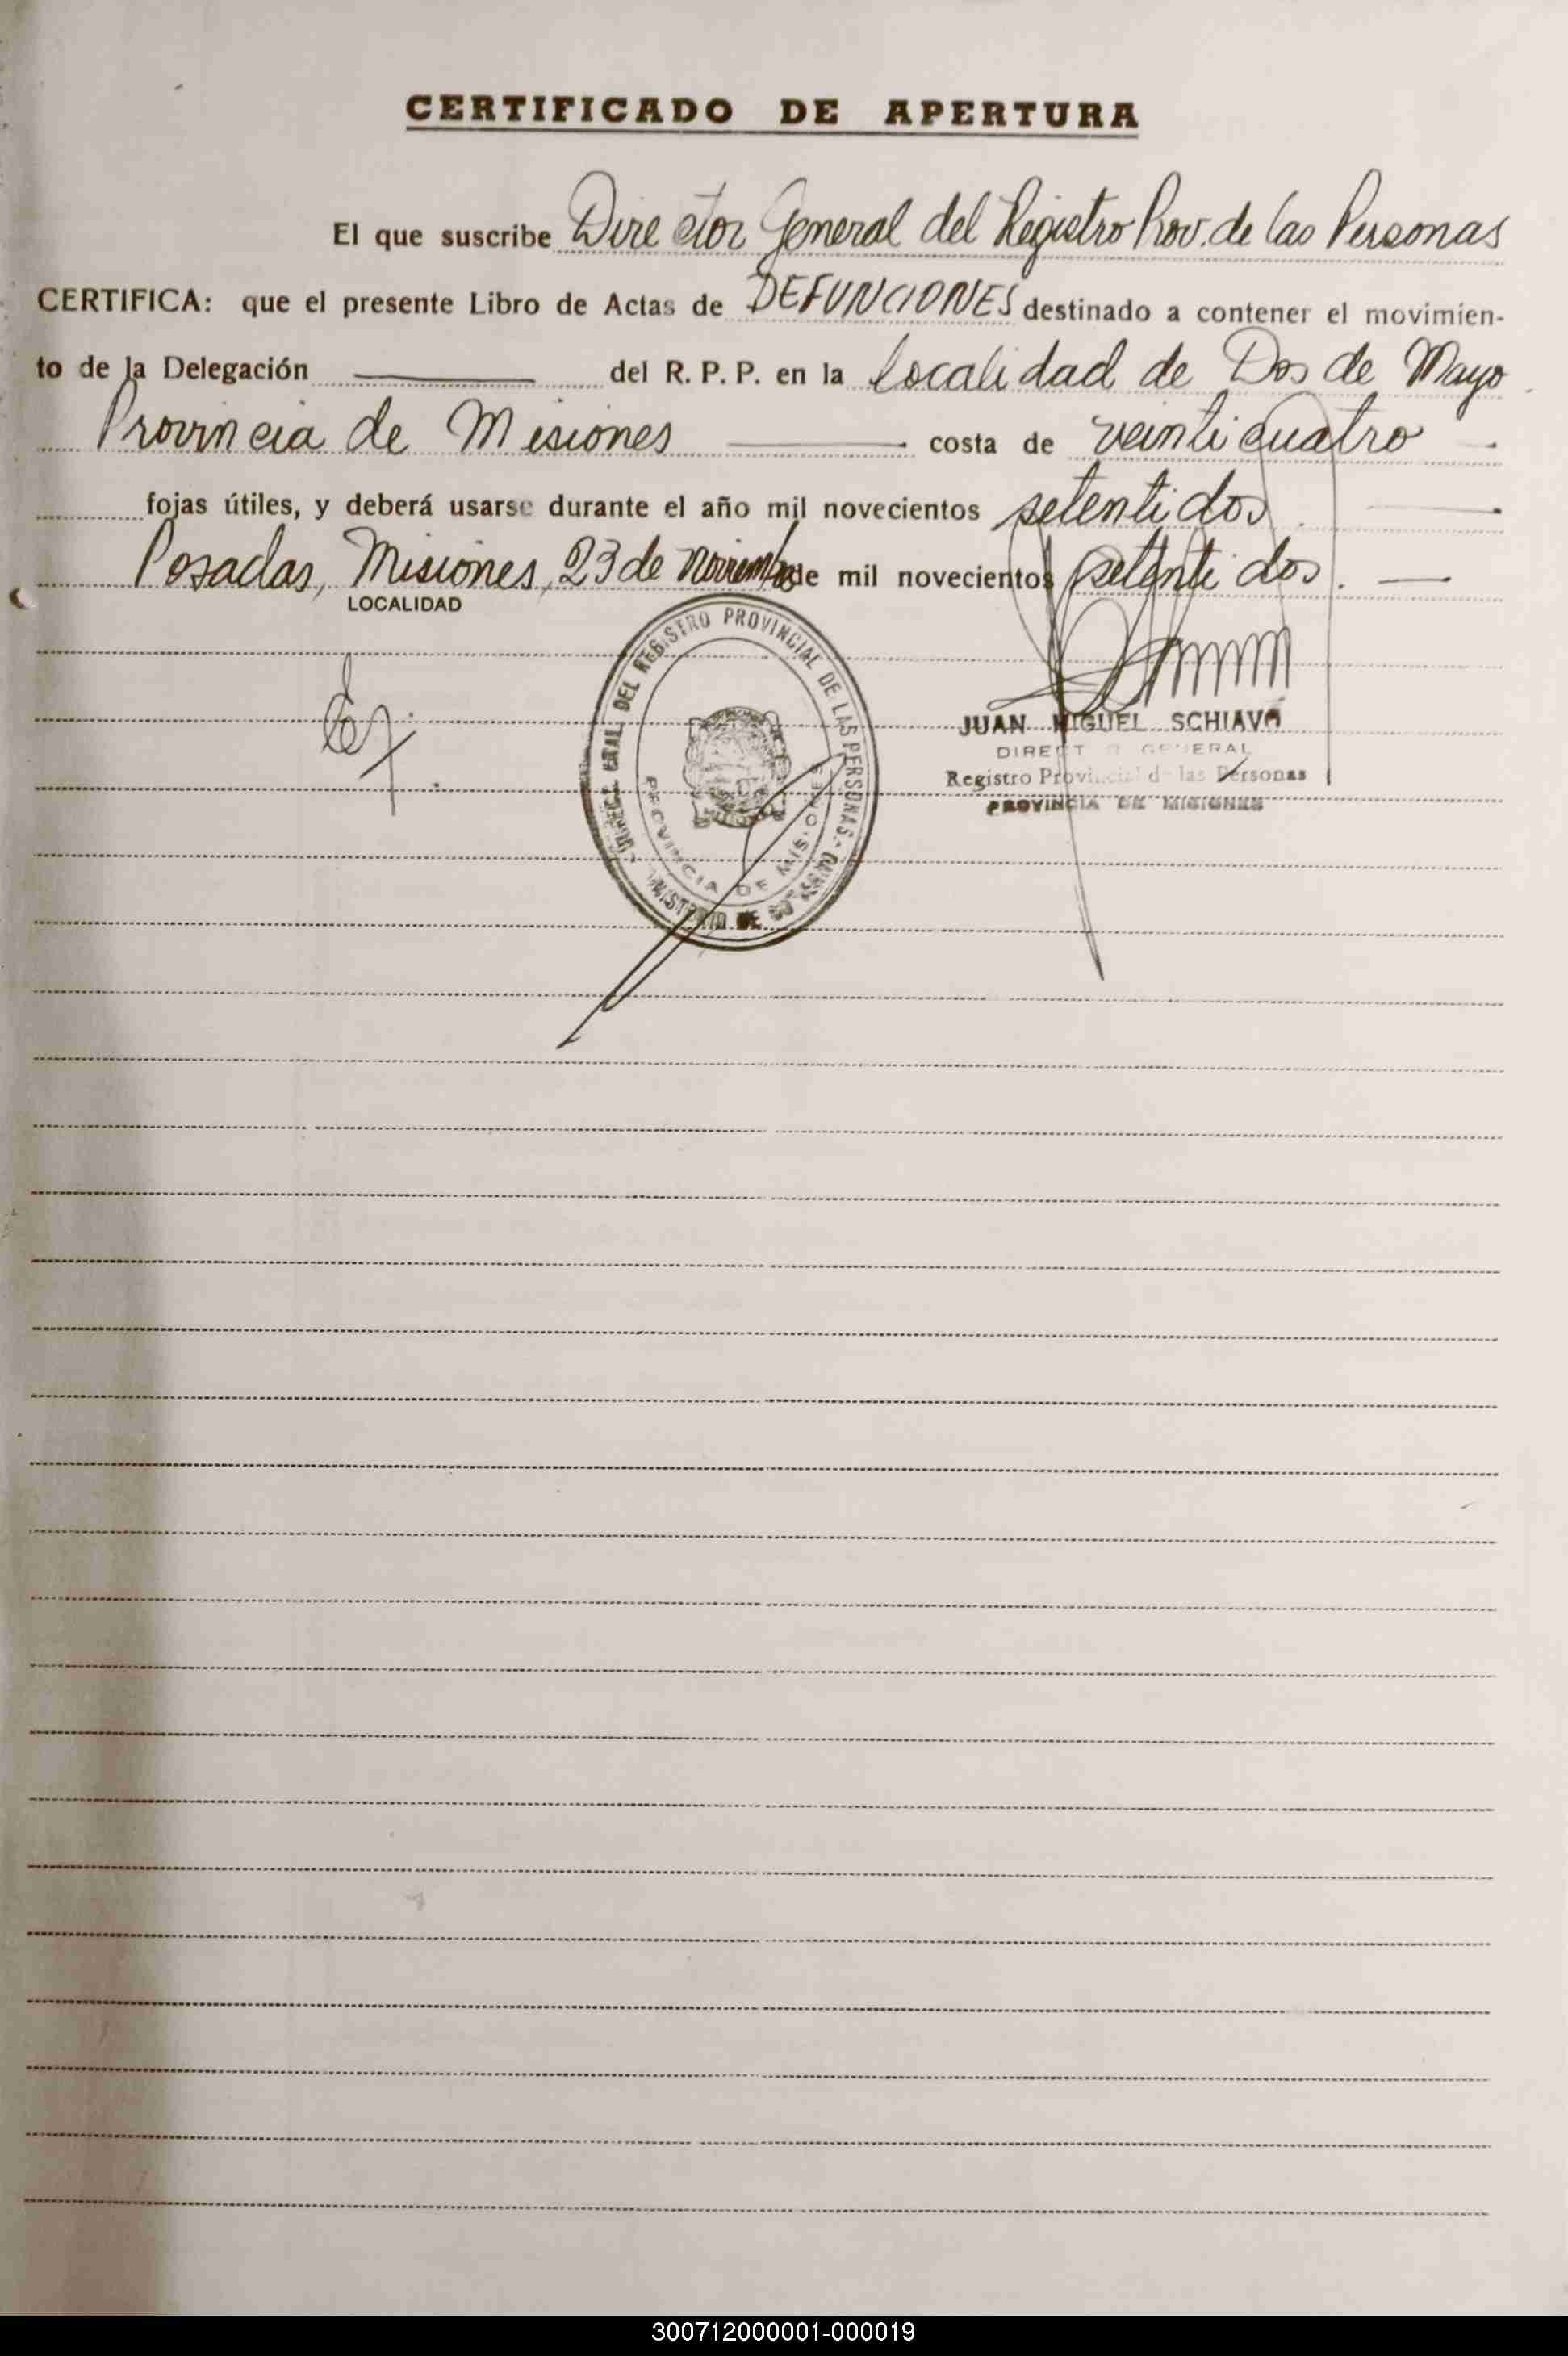 CERTIFICADO DE APERTURA
El que suscribe Director General del Registro Prov. de las Personas
CERTIFICA: que el presente Libro de Actas de DEFUNCIONES destinado a contener el movimien-
to de la Delegación del R. P. P. en la localidad de Dos de Mayo
Provincia de Misiones costa de veinticuatro
fojas útiles, y deberá usarse durante el año mil novecientos setentidos
Posadas, Misiones, 23 de noviembre de mil novecientos setentidos.
LOCALIDAD
GRAL. DEL REGISTRO PROVINCIAL DE LAS PERSONAS
PROVINCIA DE MISIONES
MINISTERIO DE GOBIERNO
JUAN MIGUEL SCHIAVO
DIRECTOR GENERAL
Registro Provincial de las Personas
PROVINCIA DE MISIONES
300712000001-000019